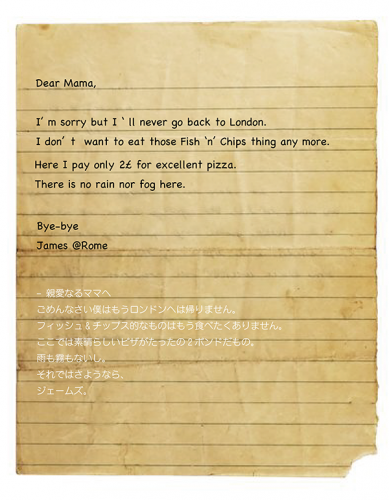 Dear Mama,
I'm sorry but I `ll never go back to London.
I don't want to eat those Fish `n' Chips thing any more.
Here I pay only 2£ for excellent pizza.
There is no rain nor fog here.
Bye-bye
James @Rome
- 親愛なるママへ
ごめんなさい僕はもうロンドンへは帰りません。
フィッシュ＆チップス的なものはもう食べたくありません。
ここでは素晴らしいピザがたったの２ポンドだもの。
雨も霧もないし。
それではさようなら、
ジェームズ、